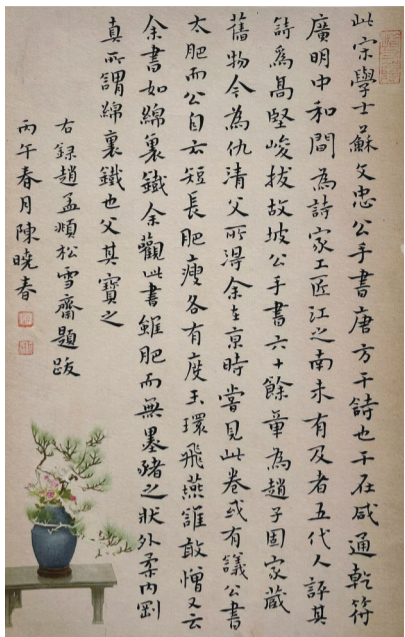 此宋學士蘇文忠公手書唐方干詩也干在咸通乾符
廣明中和間為詩家工匠江之南未有及者五代人評其
詩為高堅峻拔故坡公手書六十餘章為趙子固家藏
舊物今為仇清父所得余在京時嘗見此卷或有議公書
太肥而公自云短長肥瘦各有度玉環飛燕誰敢憎又云
余書如綿裏鐵余觀此書雖肥而無墨豬之狀外柔內剛
真所謂綿裏鐵也父其寶之
右録趙孟頫松雪齋題跋
丙午春月陳曉春